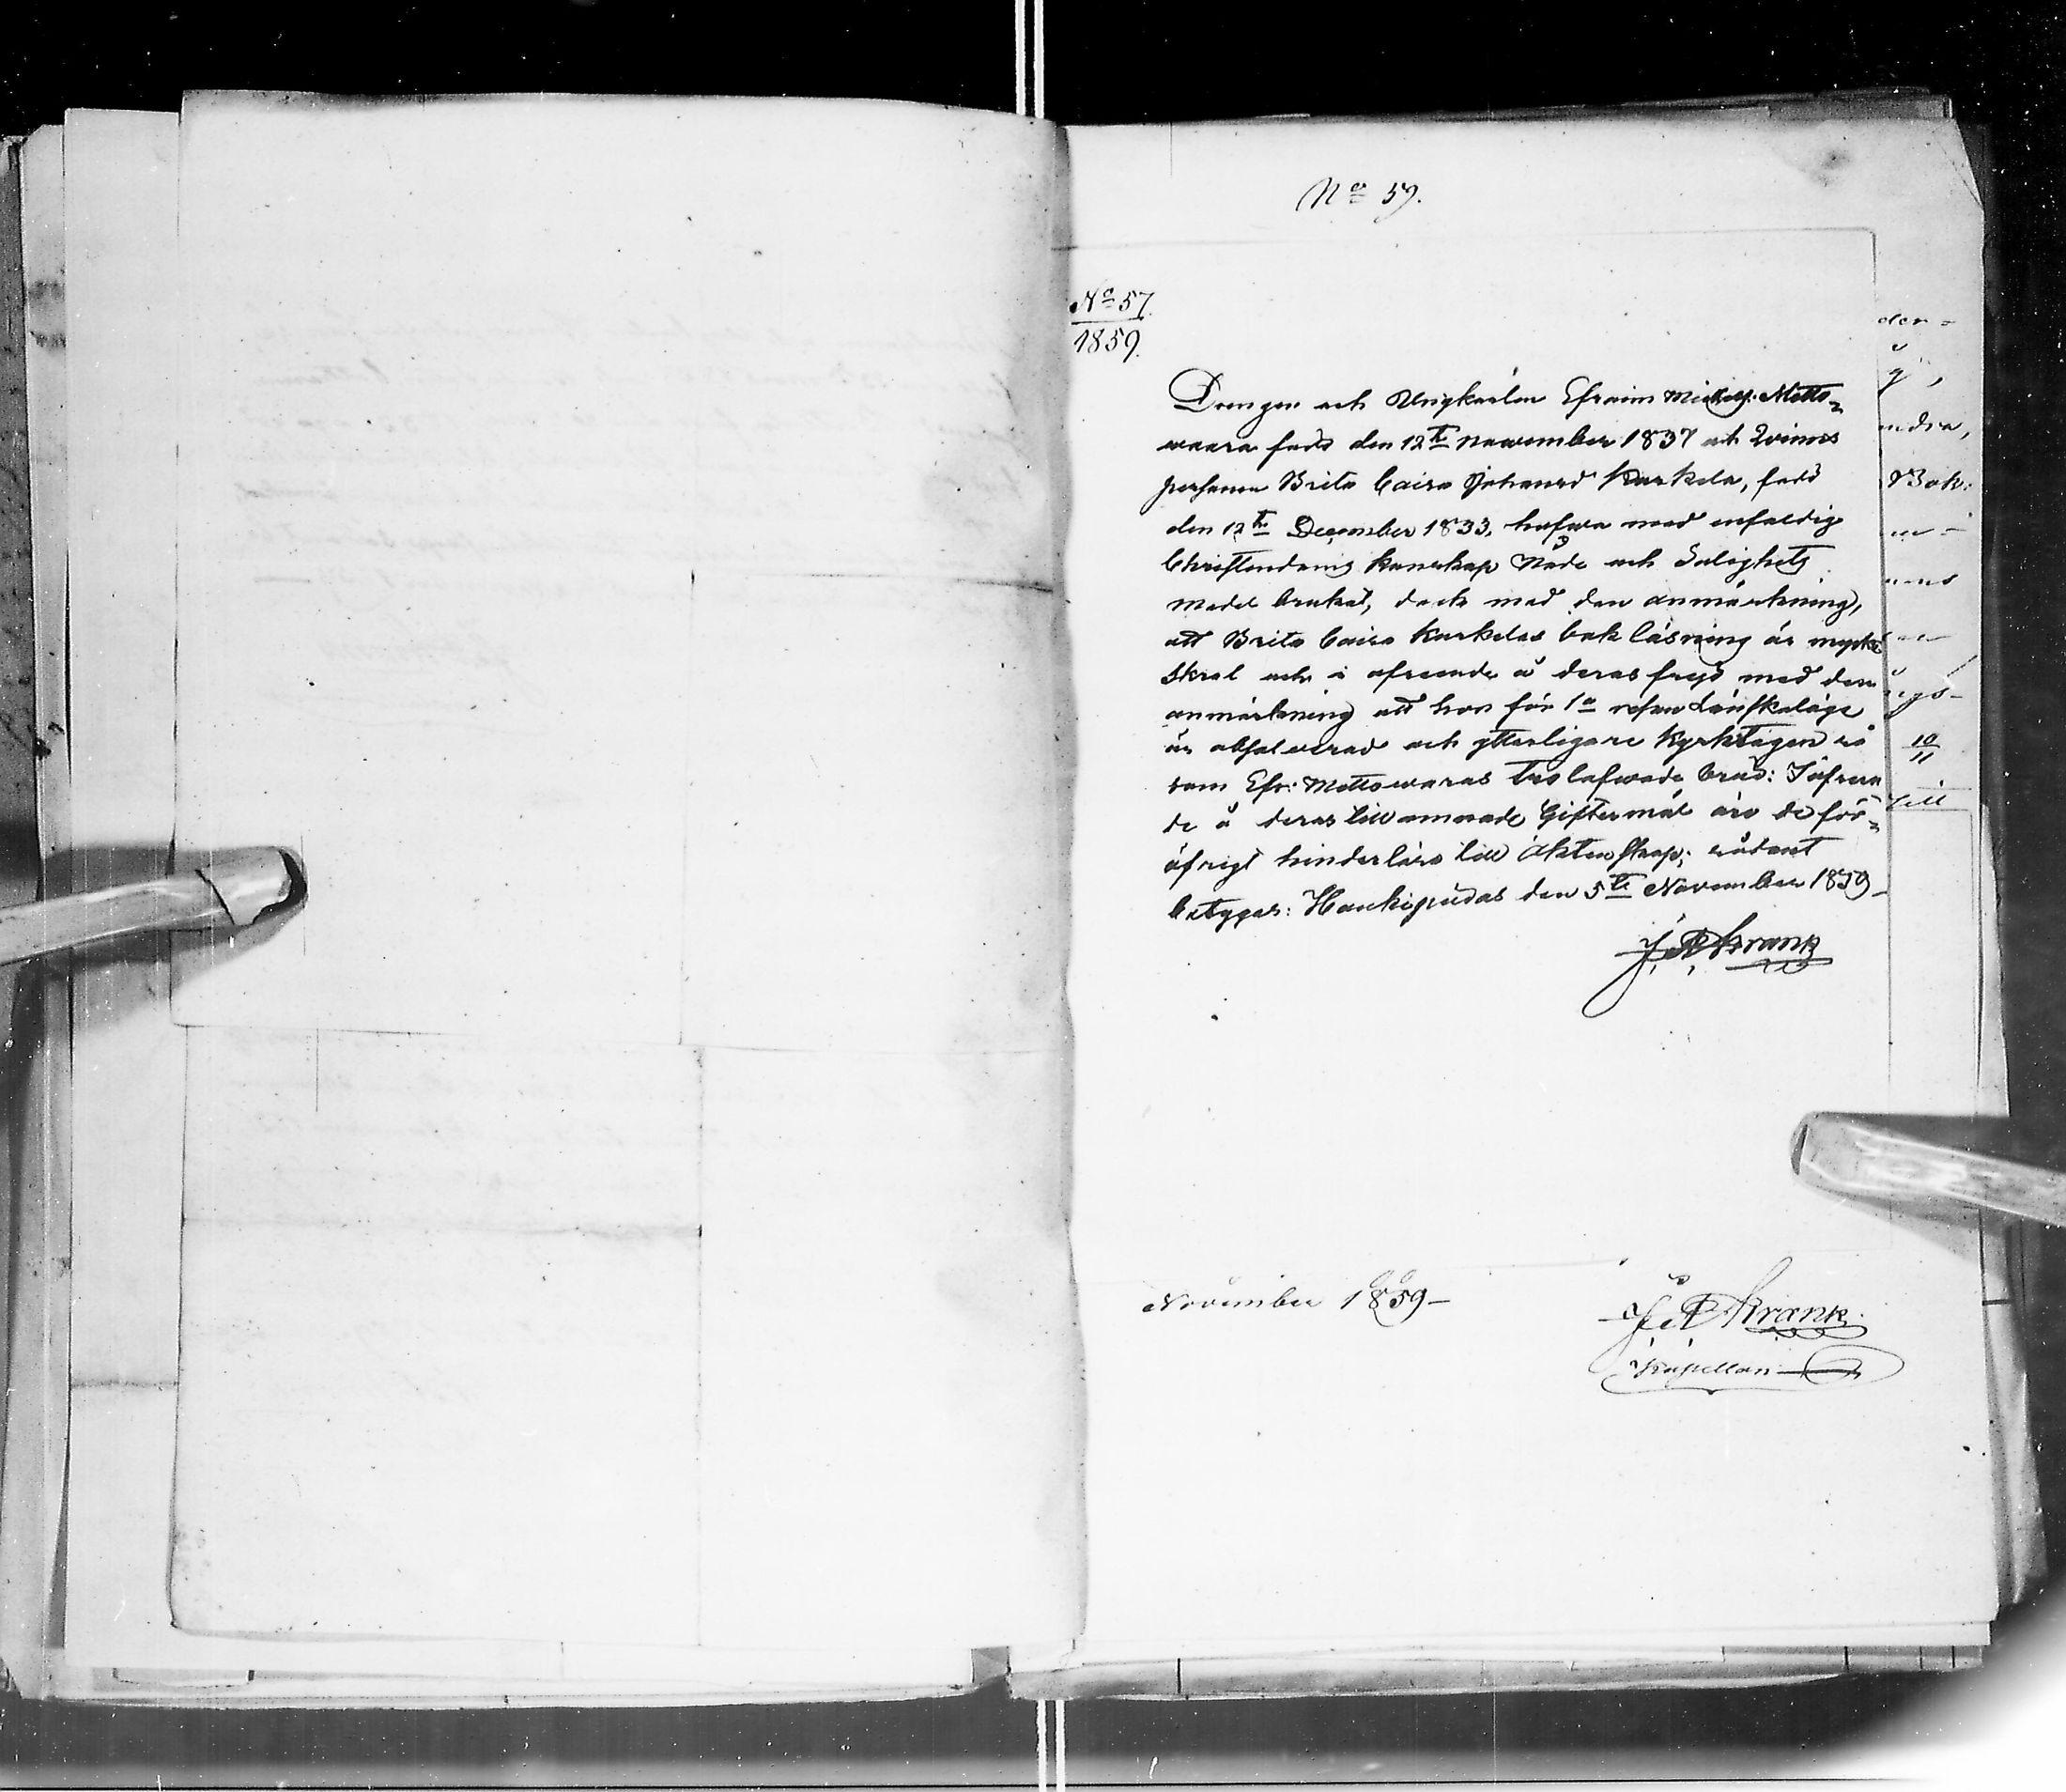 No 59.
No 57.
1859.
Drengen och Ungkarlen Efraim Mickelss: Metto=
waara född den 12te November 1837 och Qvinns
personen Brita Caisa Johansd Karkela, född
den 12te December 1833, hafwa med enfaldig
Christendoms kunskap Nåde och Salighets
medel brukat, dock med den anmärkning,
att Brita Caisa Karkelas bok läsning är mycke
skral och i afseende å deras frejd med den
anmärkning att hon för 1a resan Lönskaläge
är absolverad och ytterligare Kyrktagen så
som Efr: Mettowaras trolofwade brud: I afseen
de å deras tillämnade Giftermål äro de för=
öfrigt hinderlöse till Äktenskap; sådant
betygar: Haukipudas den 5te November 1859–
J A Krank
der=
ndra,
Bok:
10
11
till
November 1859–
J A Krank
Kapellan